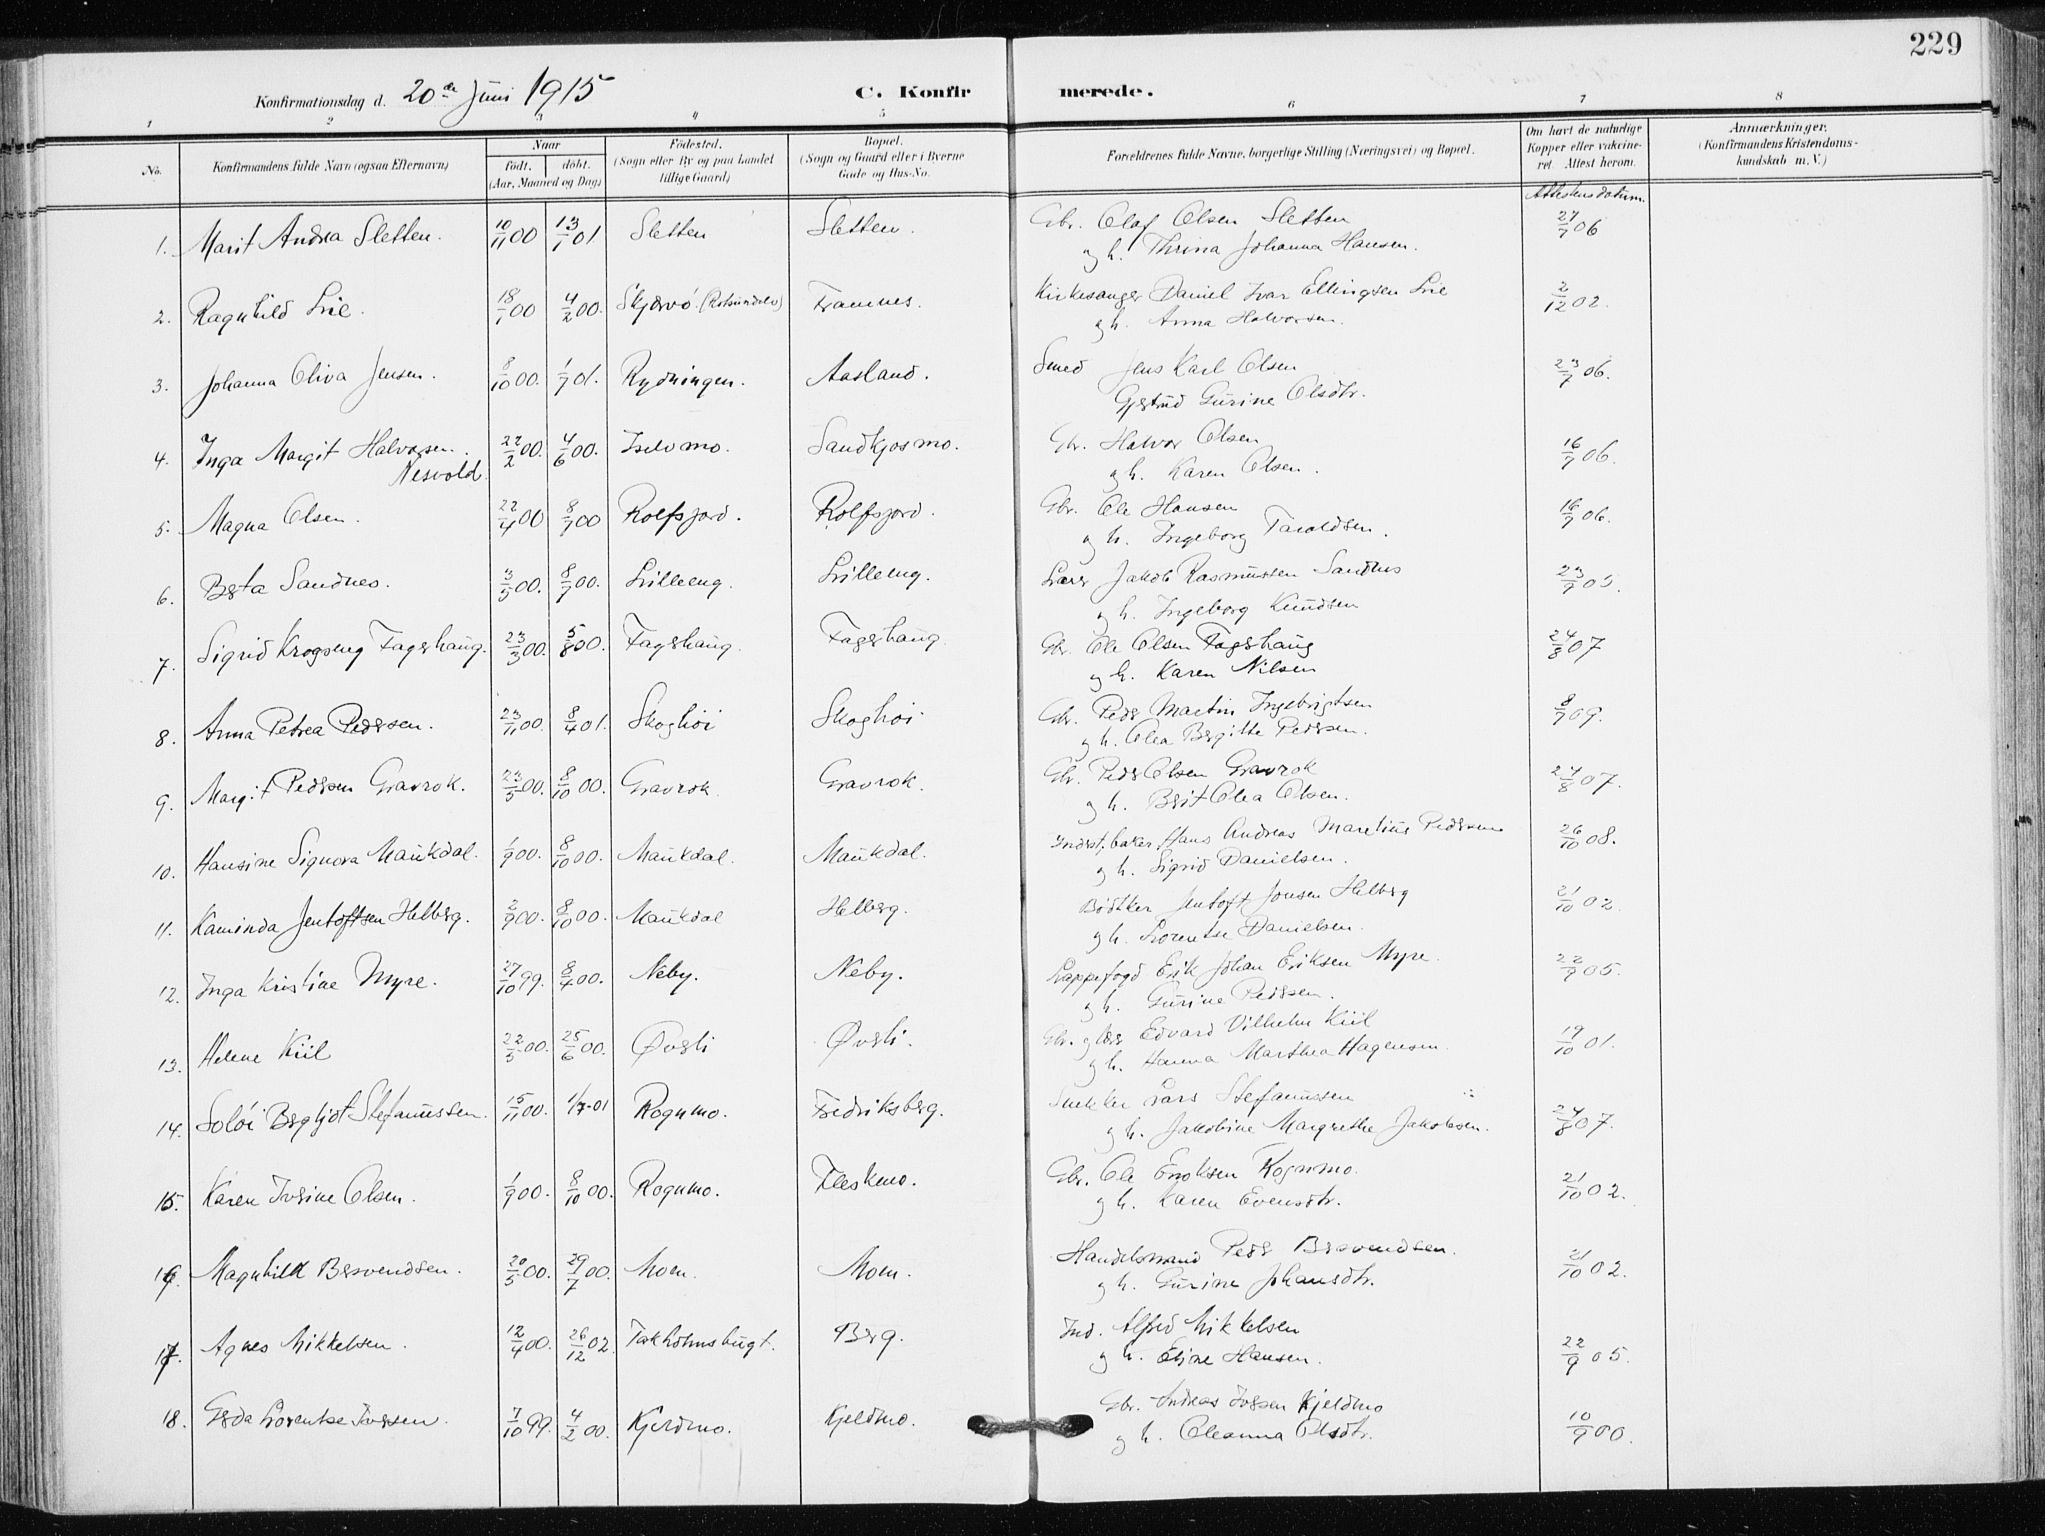 229
Konfirmationsdag d. 20de Juni 1915
C. Konfir merede.
1 2 3 4 5 6 7 8
No. Konfirmandens fulde Navn (ogsaa Efternavn) Naar født. døbt. (Aar, Maaned og Dag) Fødested. (Sogn eller By og paa Landet tillige Gaard) Bopæl. (Sogn og Gaard eller i Byerne Gade og Hus-No. Forældrenes fulde Navne, borgerlige Stilling (Næringsvei) og Bopæl. Om havt de naturlige Kopper eller vakcineret. Attest herom. Anmærkninger. (Konfirmandens Kristendomskundskab m. V.)
Attestens datum.
1. Marit Andrea Sletten. 10/11 00 13/1 01 Sletten Sletten. Gbr. Olaf Olsen Sletten 27/7 06
og h. Thrina Johanna Hansen.
2. Ragnhild Lie. 18/1 00 4/2 00. Skjervö. (Rotsundelv) Framnes. Kirkesanger Daniel Ivar Ellingsen Lie 2/12 02.
og h. Anna Halvorsen.
3. Johanna Oliva Jensen. 8/10 00. 1/7 01. Rydningen. Aasland. Smed Jens Karl Olsen 23/7 06.
Gjertrud Gurine Olsdtr.
4. Inga Margit Halvorsen. 22/2 00. 4/6 00. Iselvmo. Sandkjosmo. Gbr. Halvor Olsen 16/7 06.
Nesvold og h. Karen Olsen.
5. Magna Olsen. 22/4 00 8/7 00 Rolfsjord. Rolfsjord. Gbr. Ole Hansen 16/7 06.
og h. Ingeborg Taraldsen.
6. Berta Sandnes. 3/5 00. 8/7 00. Lilleeng. Lilleeng. Lærer Jakob Rasmussen Sandnes 23/9 05.
og h. Ingeborg Knudsen
7. Sigrid Krogseng Fagerhaug. 23/3 00. 5/8 00. Fagerhaug. Fagerhaug. Gbr. Ole Olsen Fagerhaug 24/8 07
og h. Karen Nilsen
8. Anna Petrea Pedersen. 23/11 00. 8/4 01. Skoghöi Skoghöi. Gbr. Peder Martin Ingebrigtsen 8/7 09.
og h. Olea Bergitte Pedersen.
9. Margit Pedersen Gravrok. 23/5 00. 8/10 00. Gravrok Gravrok. Gbr. Peder Olsen Gravrok 24/8 07.
og h. Berit Olea Olsen.
10. Hansine Signora Maukdal. 1/9 00. 8/10 00. Maukdal. Maukdal. Inderst, baker Hans Andreas Marelius Pedersen 26/10 08.
og h. Sigrid Danielsen.
11. Kaminda Jentoftsen Helberg. 2/9 00. 8/10 00. Maukdal Helberg. Bödtker Jentoft Jonsen Helberg 21/10 02.
og h. Lorentse Danielsen.
12. Inga Kristine Myre. 27/10 99. 8/4 00. Neby. Neby. Lappefogd Erik Johan Eriksen Myre. 22/9 05.
og h. Gurine Pedersen.
13. Helene Kiil 22/5 00. 25/6 00. Øverli Øverli. Gbr. og lærer Edvard Vilhelm Kiil 19/10 01.
og h. Hanna Marthea Hagensen.
14. Solöi Bergljot Stefanussen. 15/11 00. 1/7-01 Rognmo. Fredriksberg. Snekker Lars Stefanussen 24/8 07.
og h. Jakobine Margrethe Jakobsen.
15. Karen Iverine Olsen. 1/9 00. 8/10 00. Rognmo. Fleskmo. Gbr. Ole Enoksen Rognmo. 21/10 02.
og h. Karen Evensdtr.
16. Magnhild Bersvendsen. 20/5 00. 29/7 00. Moen. Moen. Handelsmand Peder Bersvendsen. 21/10 02.
og h. Gurine Johansdtr.
17. Agnes Mikkelsen. 12/4 00. 26/12 02. Takholmsbugt. Berg. Ind. Alfred Mikkelsen 22/9 05.
og h. Eline Hansen.
18. Gerda Lorentse Iversen. 7/10 99. 4/2 00. Kjeldmo. Kjeldmo. Gbr. Andreas Iversen Kjeldmo 10/9 00.
og h. Oleanna Olsdtr.